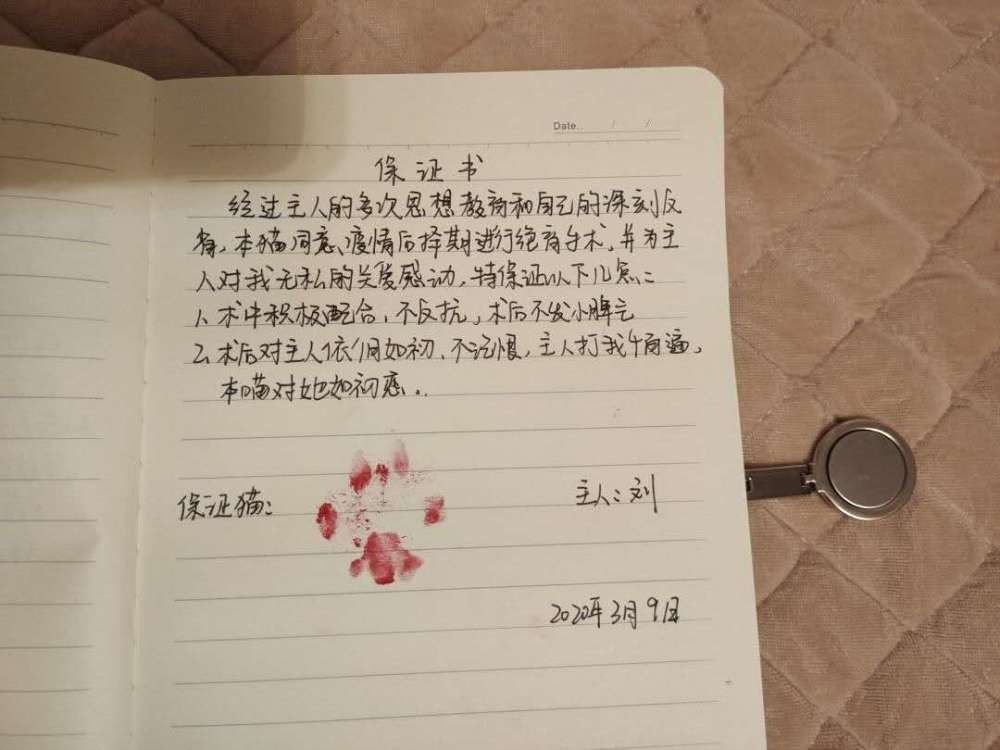 Date. / /
保证书
经过主人的多次思想教育和自己的深刻反
省，本猫同意疫情后择期进行绝育手术，并为主
人对我无私的关爱感动，特保证以下几点：
1、术中积极配合，不反抗，术后不发小脾气
2、术后对主人依旧如初、不记恨，主人打我千百遍，
本喵对她如初恋..
保证猫：
主人：刘
2020年3月9日